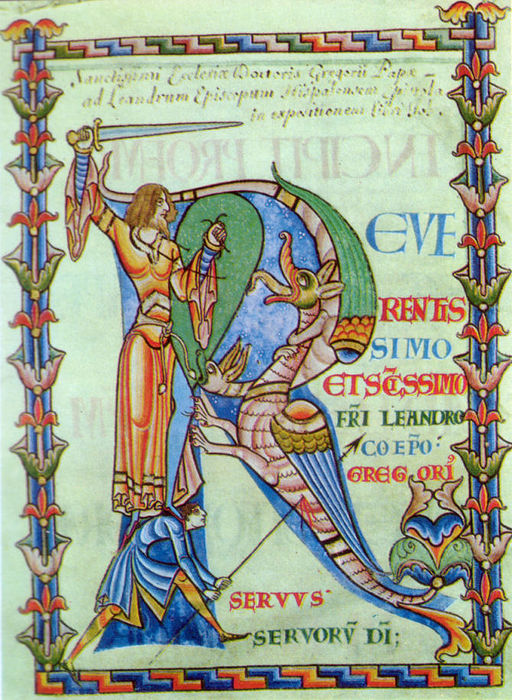 Sanctissimi Ecclesiæ Doctoris Gregorii Papæ
ad Leandrum Episcopum Hispalensem
in expositionem libri Iob.
REVE
RENTIS
SIMO
ET SC̄ISSIMO
FR̄I LEANDRO
COEPO
GREGORI
SERVVS
SERVORV̄ DI;